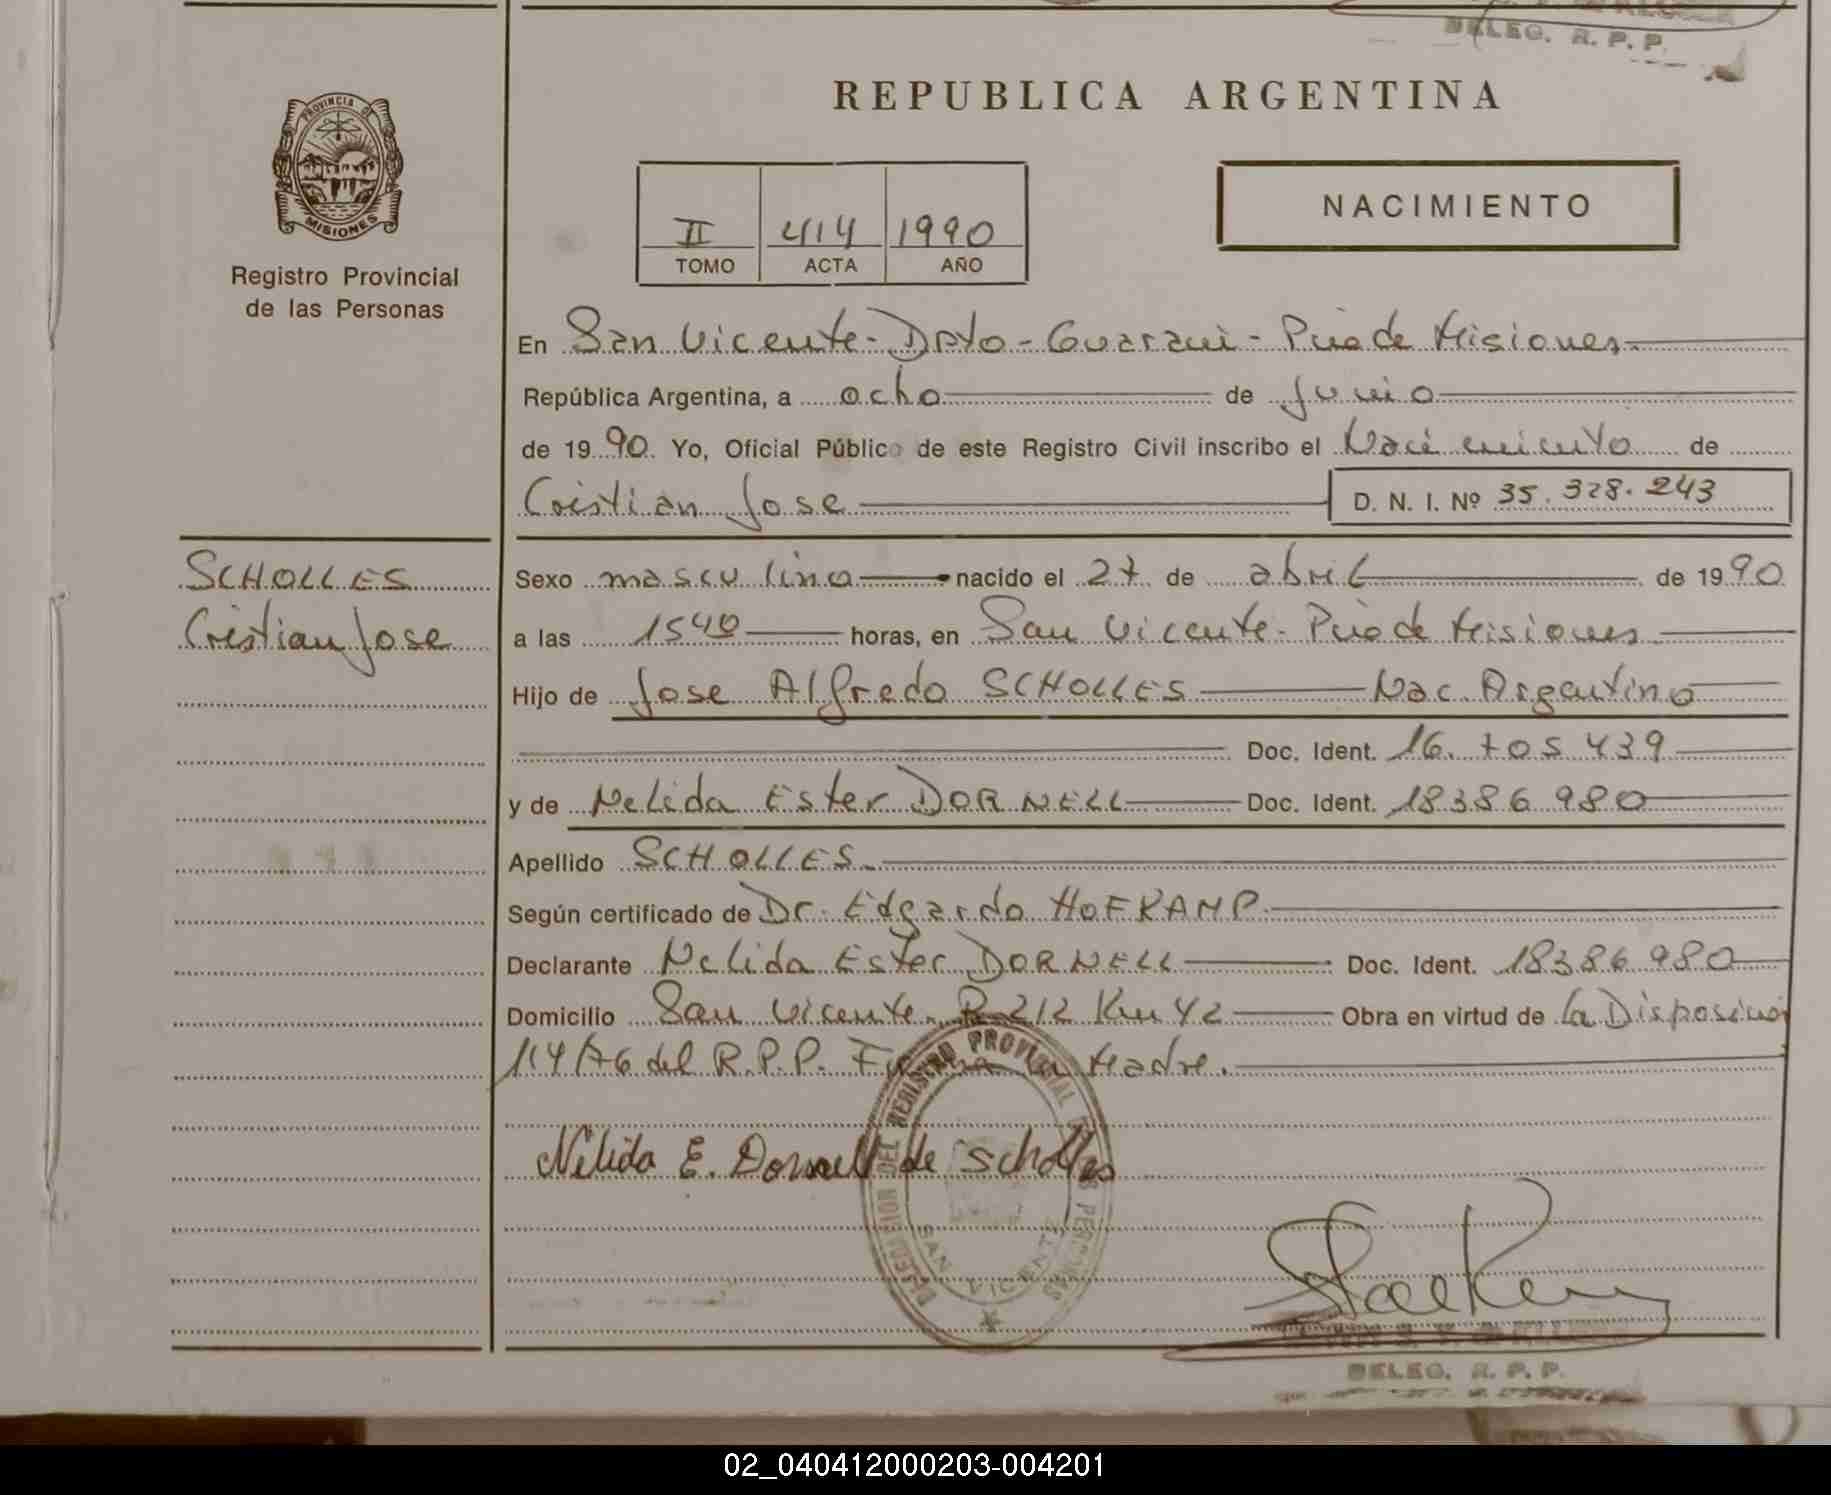 DELEG. R. P. P.
PROVINCIA D
MISIONES
Registro Provincial
de las Personas
REPUBLICA ARGENTINA
II 414 1990
TOMO ACTA AÑO
NACIMIENTO
En San Vicente - Dpto - Guarani - Pcia de Misiones
República Argentina, a ocho de Junio
de 1990. Yo, Oficial Público de este Registro Civil inscribo el Nacimiento de
Cristian Jose D. N. I. Nº 35.328.243
SCHOLLES
Cristian Jose
Sexo masculino nacido el 27 de abril de 1990
a las 1540 horas, en San Vicente - Pcia de Misiones
Hijo de Jose Alfredo SCHOLLES Nac. Argentino
Doc. Ident. 16.705.439
y de Nelida Ester DORNELL Doc. Ident. 18386980
Apellido SCHOLLES
Según certificado de Dr. Edgardo HOFKAMP
Declarante Nelida Ester DORNELL Doc. Ident. 18386980
Domicilio San Vicente. R 212 Km 42 Obra en virtud de la Disposición
114/76 del R.P.P. Firma la Madre.
Nélida E. Dornell de Scholles
DELEGACION DEL REGISTRO PROVINCIAL DE LAS PERSONAS
SAN VICENTE
DELEG. R. P. P.
02_040412000203-004201